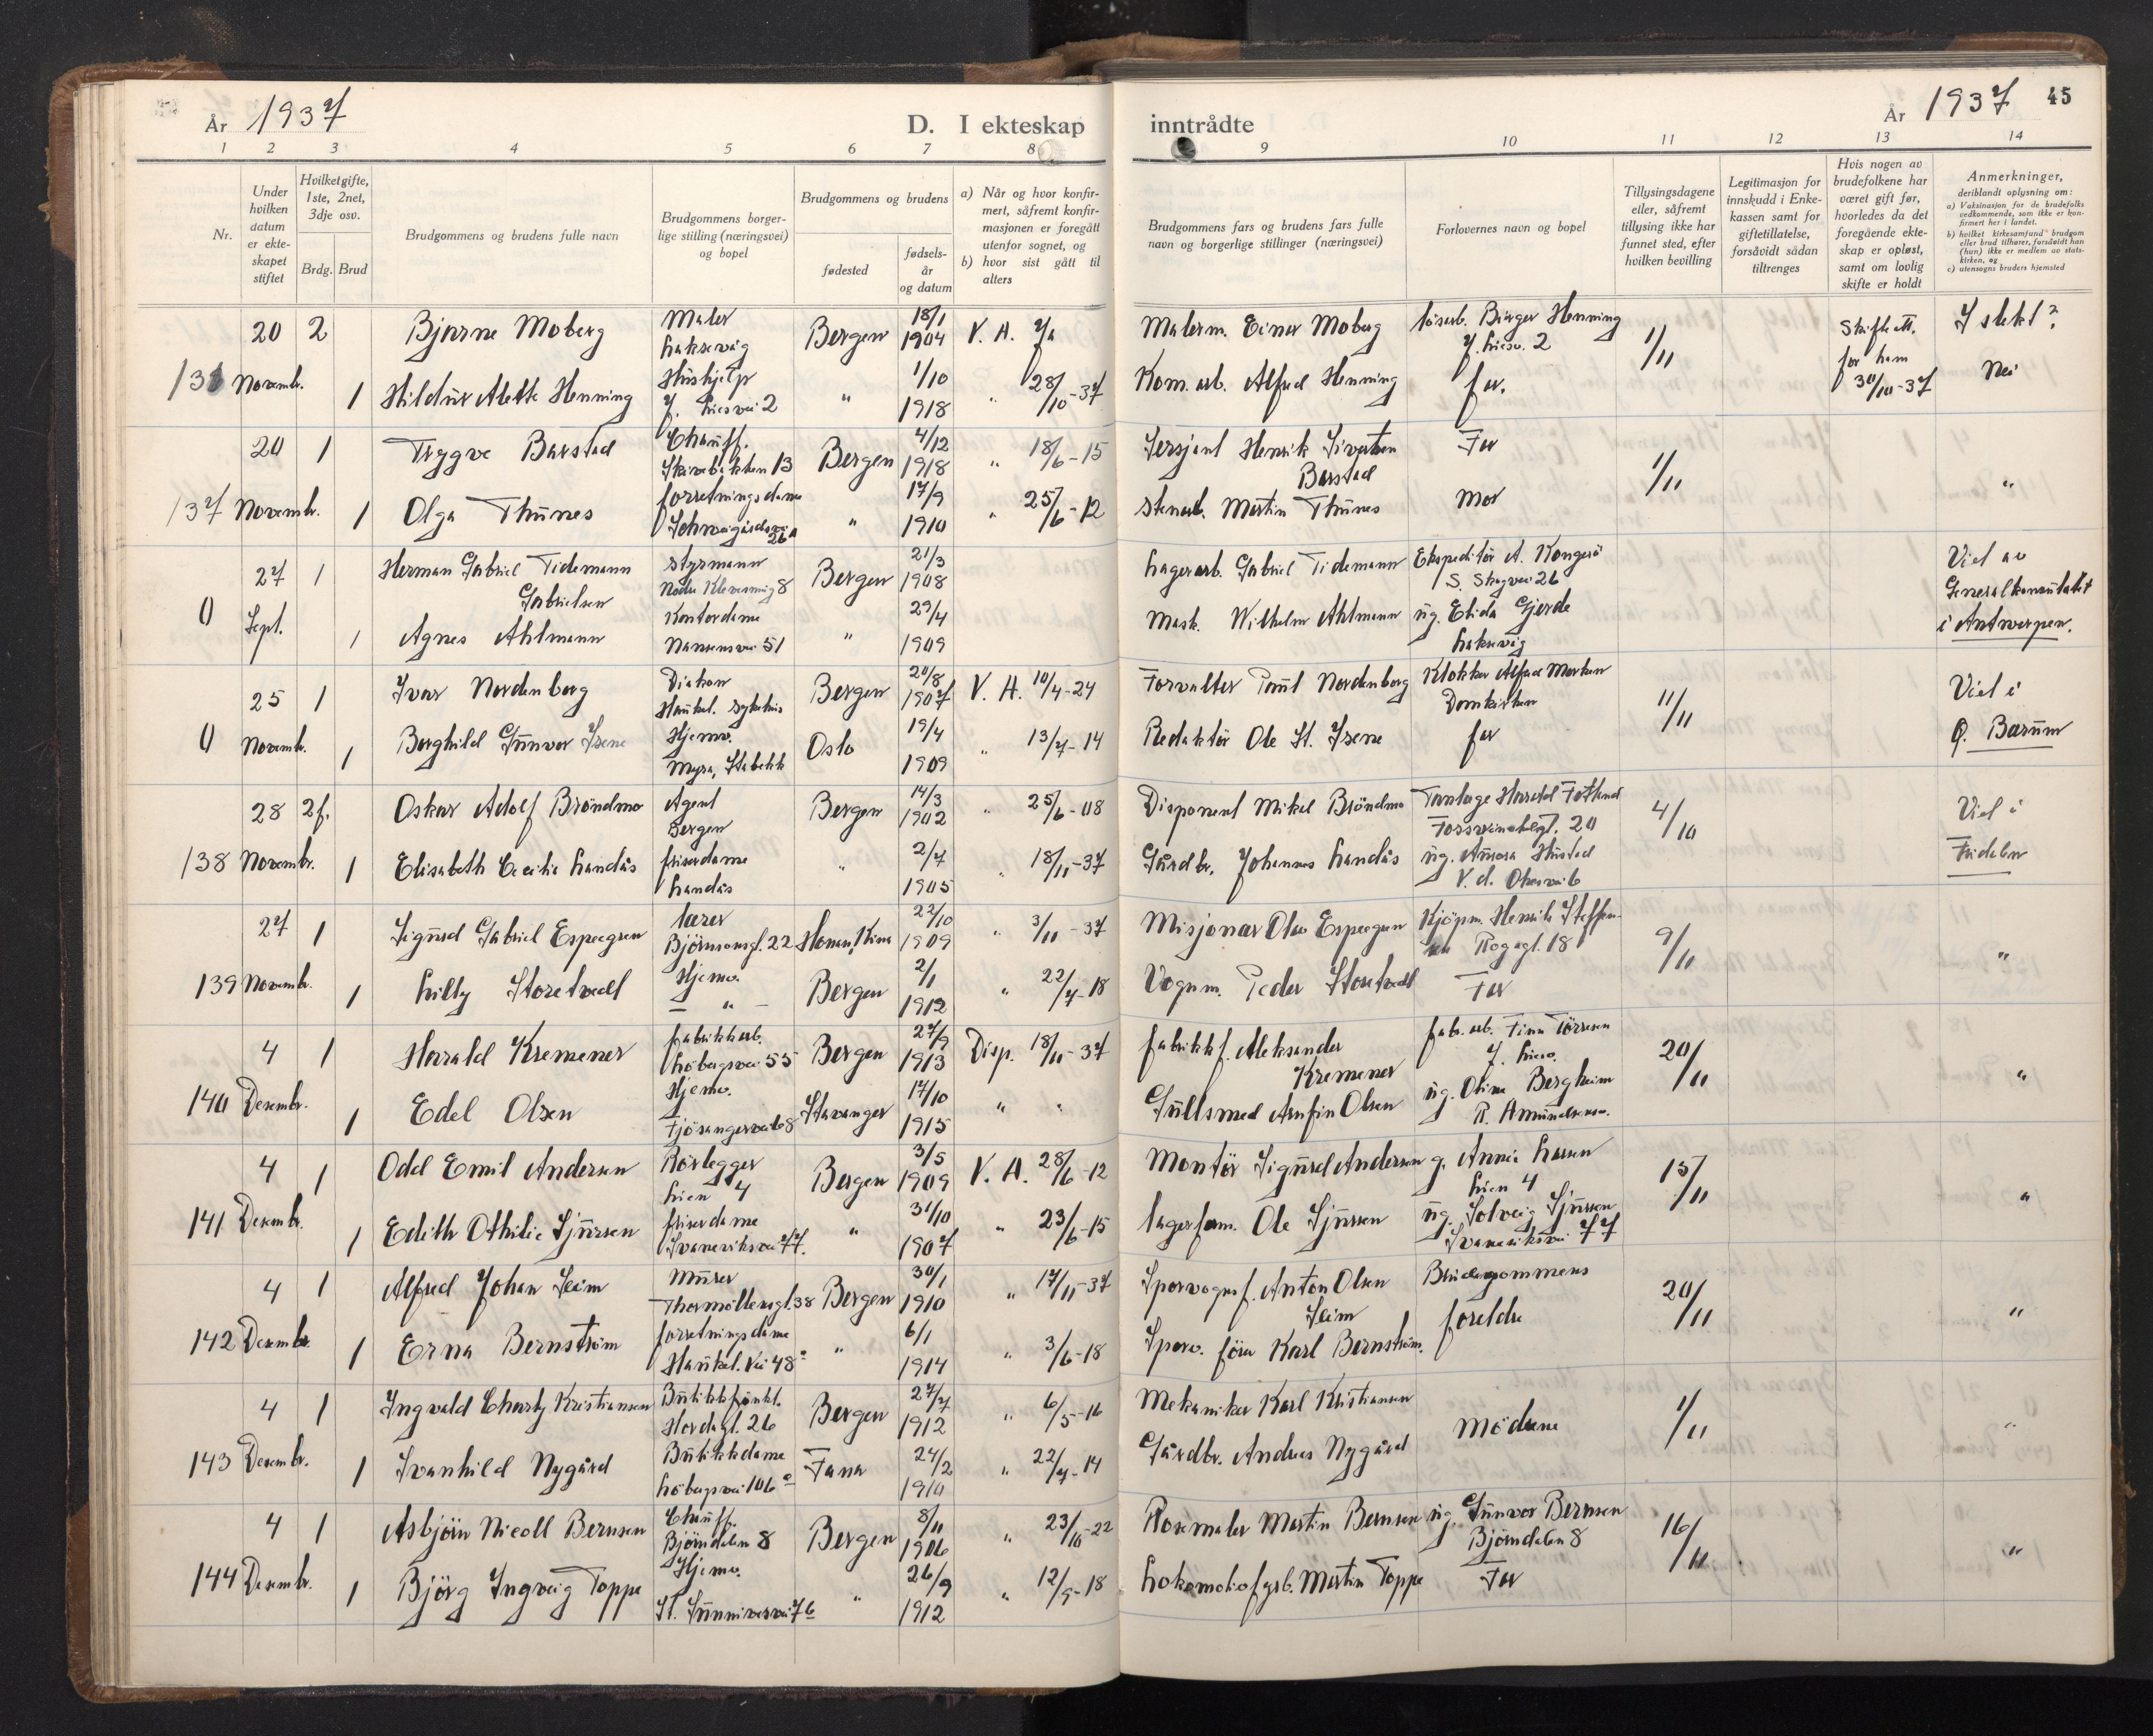 År 1937
D. I ekteskap
1 2 3 4 5 6 7 8
Nr.
Under
hvilken
datum
er ekte-
skapet
stiftet
Hvilket gifte,
1ste, 2net,
3dje osv.
Brdg. Brud
Brudgommens og brudens fulle navn
Brudgommens borger-
lige stilling (næringsvei)
og bopel
Brudgommens og brudens
fødested
fødsels-
år
og datum
a) Når og hvor konfir-
mert, såfremt konfir-
masjonen er foregått
utenfor sognet, og
b) hvor sist gått til
alters
20 2 Bjarne Moberg Maler Laksevåg Bergen 18/1 1904 V. A.
Novembr. 1 Hildur Alette Henning Hushjelp J. Liesvei 2 " 1/10 1918 " 28/10-37
20 1 Trygve Barstad Chauff. Bergen 4/12 1918 " 18/6-15
137 Novembr. 1 Olga Thunes forretningsdame 17/9 1910 " 25/6-12
27 1 Herman Gabriel Tidemann
Gabrielsen styrmann Bergen 21/3 1908
0 Sept. 1 Agnes Ahlmann Kontordame Nansensvei 51 " 29/4 1909
25 1 Ivar Nordenborg Diakon Haukel. sykehus Bergen 20/8 1907 V. A. 10/4-24
0 Novembr. 1 Borghild Gunvor Isene Hjemv. Myra, Stabekk Oslo 19/4 1909 " 13/7-14
28 2f. Oskar Adolf Bröndmo Agent Bergen Bergen 14/3 1902 " 25/6-08
138 Novembr. 1 Elisabeth Cecilie Landås friserdame Landås " 2/7 1905 " 18/11-37
27 1 Sigurd Gabriel Espegren lærer Björnsonsgt. 22 Honan, Kina 22/10 1909 " 3/11-37
139 Novembr. 1 Lilly Storetvedt Hjemv. — " — Bergen 2/1 1912 " 22/7-18
4 1 Harald Kremener fabrikkarb. Löbergsvei 55 Bergen 27/9 1913 Disp. 18/11-37
140 Desembr. 1 Edel Olsen Hjemv. Fjösangervei 68 Stavanger 17/10 1915 " "
4 1 Odd Emil Andersen Rörlegger Lien 4 Bergen 3/5 1909 V. A. 28/6-12
141 Desembr. 1 Edith Othilie Sjursen friserdame Svaneviksvei 77. " 31/10 1907 " 23/6-15
4 1 Alfred Johan Seim Murer Thormöllensgt. 38 Bergen 30/1 1910 " 17/11-37
142 Desembr. 1 Erna Bernström forretningsdame Haukel. Vei 48a " 6/1 1914 " 3/6-18
4 1 Ingvald Charly Kristiansen Hordagt. 26 Bergen 27/7 1912 " 6/5-16
143 Desembr. 1 Svanhild Nygård Butikkdame Löbergsvei 106a Fana 24/2 1910 " 22/7-14
4 1 Asbjörn Nicoll Bernsen Chauff. Björndalen 8 Bergen 8/11 1906 " 23/10-22
144 Desembr. 1 Björg Ingveig Toppe Hjemv. St. Sunnivasvei 76 " 26/9 1912 " 12/9-18
inntrådte
År 1937 45
9 10 11 12 13 14
Brudgommens fars og brudens fars fulle
navn og borgerlige stillinger (næringsvei)
Forlovernes navn og bopel
Tillysingsdagene
eller, såfremt
tillysing ikke har
funnet sted, efter
hvilken bevilling
Legitimasjon for
innskudd i Enke-
kassen samt for
giftetillatelse,
forsåvidt sådan
tiltrenges
Hvis nogen av
brudefolkene har
været gift før,
hvorledes da det
foregående ekte-
skap er opløst,
samt om lovlig
skifte er holdt
Anmerkninger,
deriblandt oplysning om:
a) Vaksinasjon for de brudefolks
vedkommende, som ikke er kon-
firmert her i landet.
b) hvilket kirkesamfund brudgom
eller brud tilhører, forsåvidt han
(hun) ikke er medlem av stats-
kirken, og
c) utensogns bruders hjemsted
Malerm. Einar Moberg lösarb. Birger Henning J. Liesv. 2 1/11 Skifteatt. I slekt?
Kom. arb. Alfred Henning far. for ham 30/10-37 Nei
Sersjant Henrik Sivertsen
Barstad Far 1/11
Stenarb. Martin Thunes Mor "
Lagerarb. Gabriel Tidemann Ekspeditör A. Viet av
Generalkonsulatet
Mask. Wilhelm Ahlmann ug. Elida Gjerde
Laksevåg i Antwerpen.
Forvalter Nordenborg Klokker Alfred
Domkirken 11/11 Viet i
Redaktör Ole Isene far Ö. Bærum
Disponent Mikal Bröndmo 4/10 Viet i
Gårdbr. Johannes Landås ug. Aurora Hustad
Fridalen
Misjonær Olav Espegren Kjöpm. Henrik Steffen-
sen 9/11
Vognm. Peder Storetvedt Far "
fabrikkf. Aleksander
Kremener fab. arb. Finn Törresen
J. Liesv. 20/11
Gullsmed Arnfin Olsen ug. Olina Bergheim
R. Amundsensv. "
Montör Sigurd Andersen g. Annie Larsen
Lien 4 15/11
lagerform. Ole Sjursen ug. Solveig Sjursen
Svaneviksvei 77 "
Sporvognsf. Anton Olsen
Seim Brudgommens 20/11
Sporv. förer Karl Bernström. foreldre "
Mekaniker Karl Kristiansen Mödrene 1/11
Gårdbr. Andreas Nygård "
Rosemaler Martin Bernsen ug. Gunvor Bernsen
Björndalen 8 16/11
Lokomotivfyrb. Martin Toppe Far "